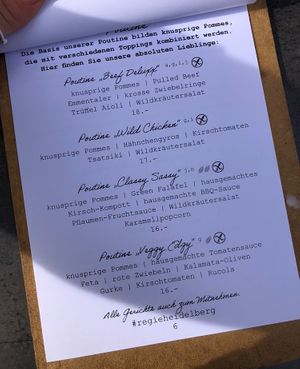 Poutine
Die Basis unserer Poutine bilden knusprige Pommes,
die mit verschiedenen Toppings kombiniert werden.
Hier finden Sie unsere absoluten Lieblinge:
Poutine „Beef Deluxe“
knusprige Pommes | Pulled Beef
Emmentaler | krosse Zwiebelringe
Trüffel Aioli | Wildkräutersalat
18.-
Poutine „Wild Chicken“ g,j
knusprige Pommes | Hähnchengyros | Kirschtomaten
Tsatsiki | Wildkräutersalat
17.-
Poutine „Classy Sassy“
knusprige Pommes | Green Falafel | hausgemachtes
Kirsch-Kompott | hausgemachte BBQ-Sauce
Pflaumen-Fruchtsauce | Wildkräutersalat
Karamellpopcorn
16.-
Poutine „Veggy Edgy“ g
knusprige Pommes | hausgemachte Tomatensauce
Feta | rote Zwiebeln | Kalamata-Oliven
Gurke | Kirschtomaten | Rucola
16.-
Alle Gerichte auch zum Mitnehmen.
#regieheidelberg
6